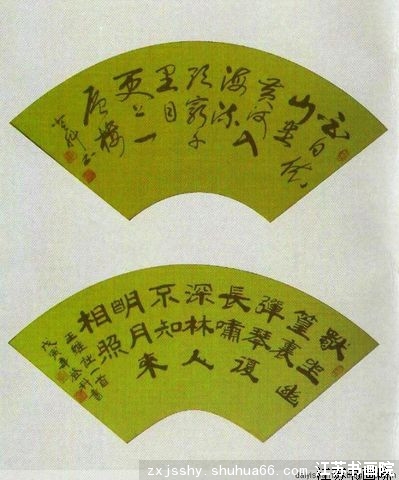 白日依
山尽
黄河入
海流
欲窮千
里目
更上一
層樓
獨坐幽
篁裏
彈琴復
長嘯
深林人
不知
明月來
相照
王維诗一首書
戊寅年
zxjsshy.shuhua66.com
江苏书画院